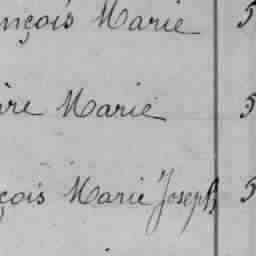 nçois Marie 5
ire Marie 5
çois Marie Joseph 5